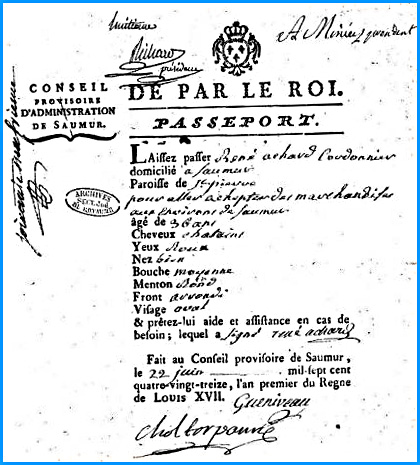 président
CONSEIL
PROVISOIRE
D'ADMINISTRATION
DE SAUMUR.
DE PAR LE ROI.
PASSEPORT.
LAissez passer René achard Cordonnier
domicilié a Saumur
Paroisse de St pierre
pour aller achepter des marchandises
aux Environs de Saumur
âgé de 36 ans
Cheveux chatains
Yeux Roux
Nez bien
Bouche moyenne
Menton Rond
Front arrondi
Visage oval
& prêtez-lui aide et assistance en cas de
besoin; lequel a signé rené achard
Fait au Conseil provisoire de Saumur,
le 22 juin mil-sept cent
quatre-vingt-treize, l'an premier du Regne
de LOUIS XVII.
ARCHIVES